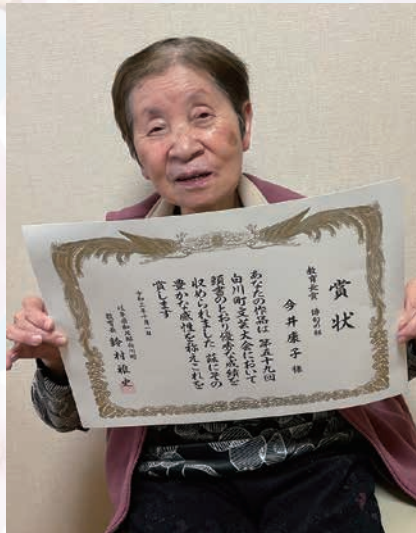 賞状
教育長賞 俳句の部
今井康子 様
あなたの作品は 第五十九回
白川町文芸大会において
頭書のとおり優秀な成績を
収められました 茲にその
豊かな感性を称えこれを
賞します
令和三年十一月一日
岐阜県加茂郡白川町
教育長 鈴村雅史